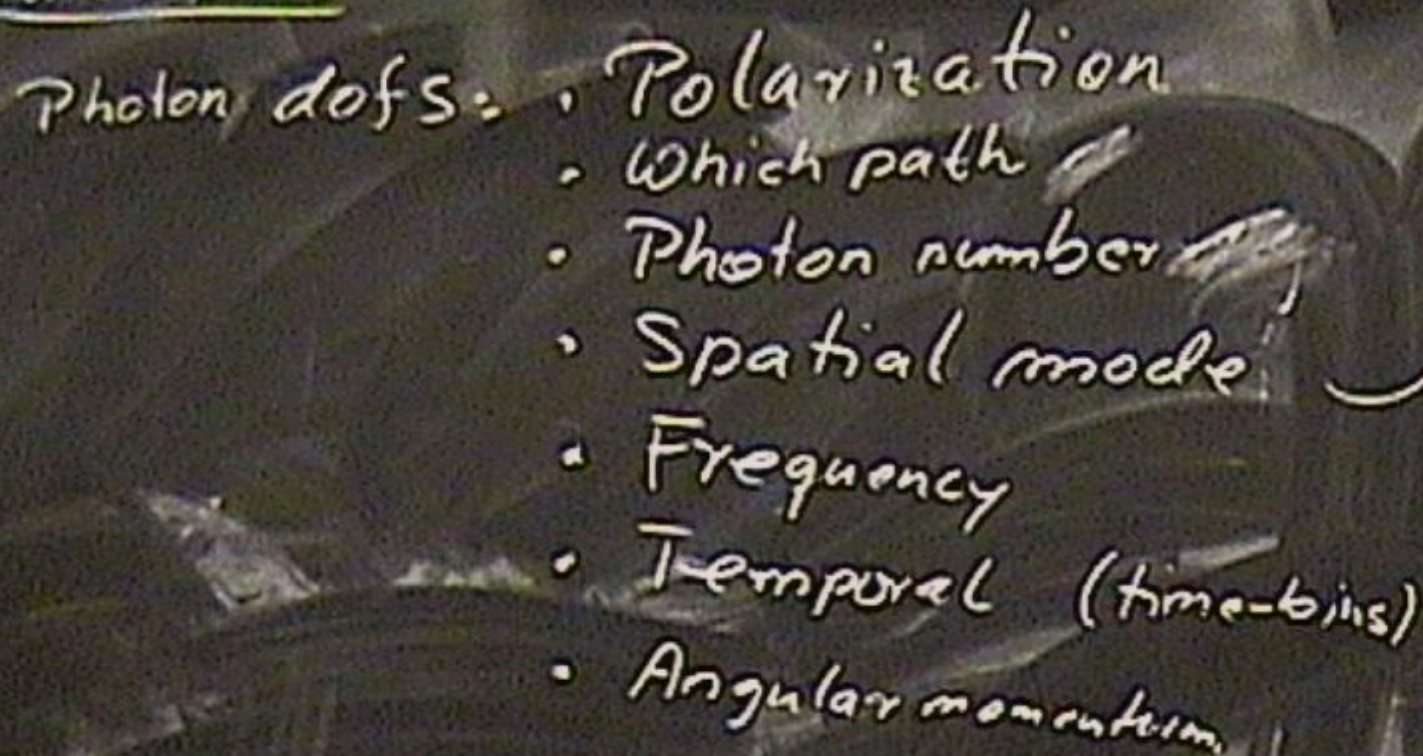 Photon dofs: • Polarization
• Which path
• Photon number
• Spatial mode
• Frequency
• Temporal (time-bins)
• Angular momentum